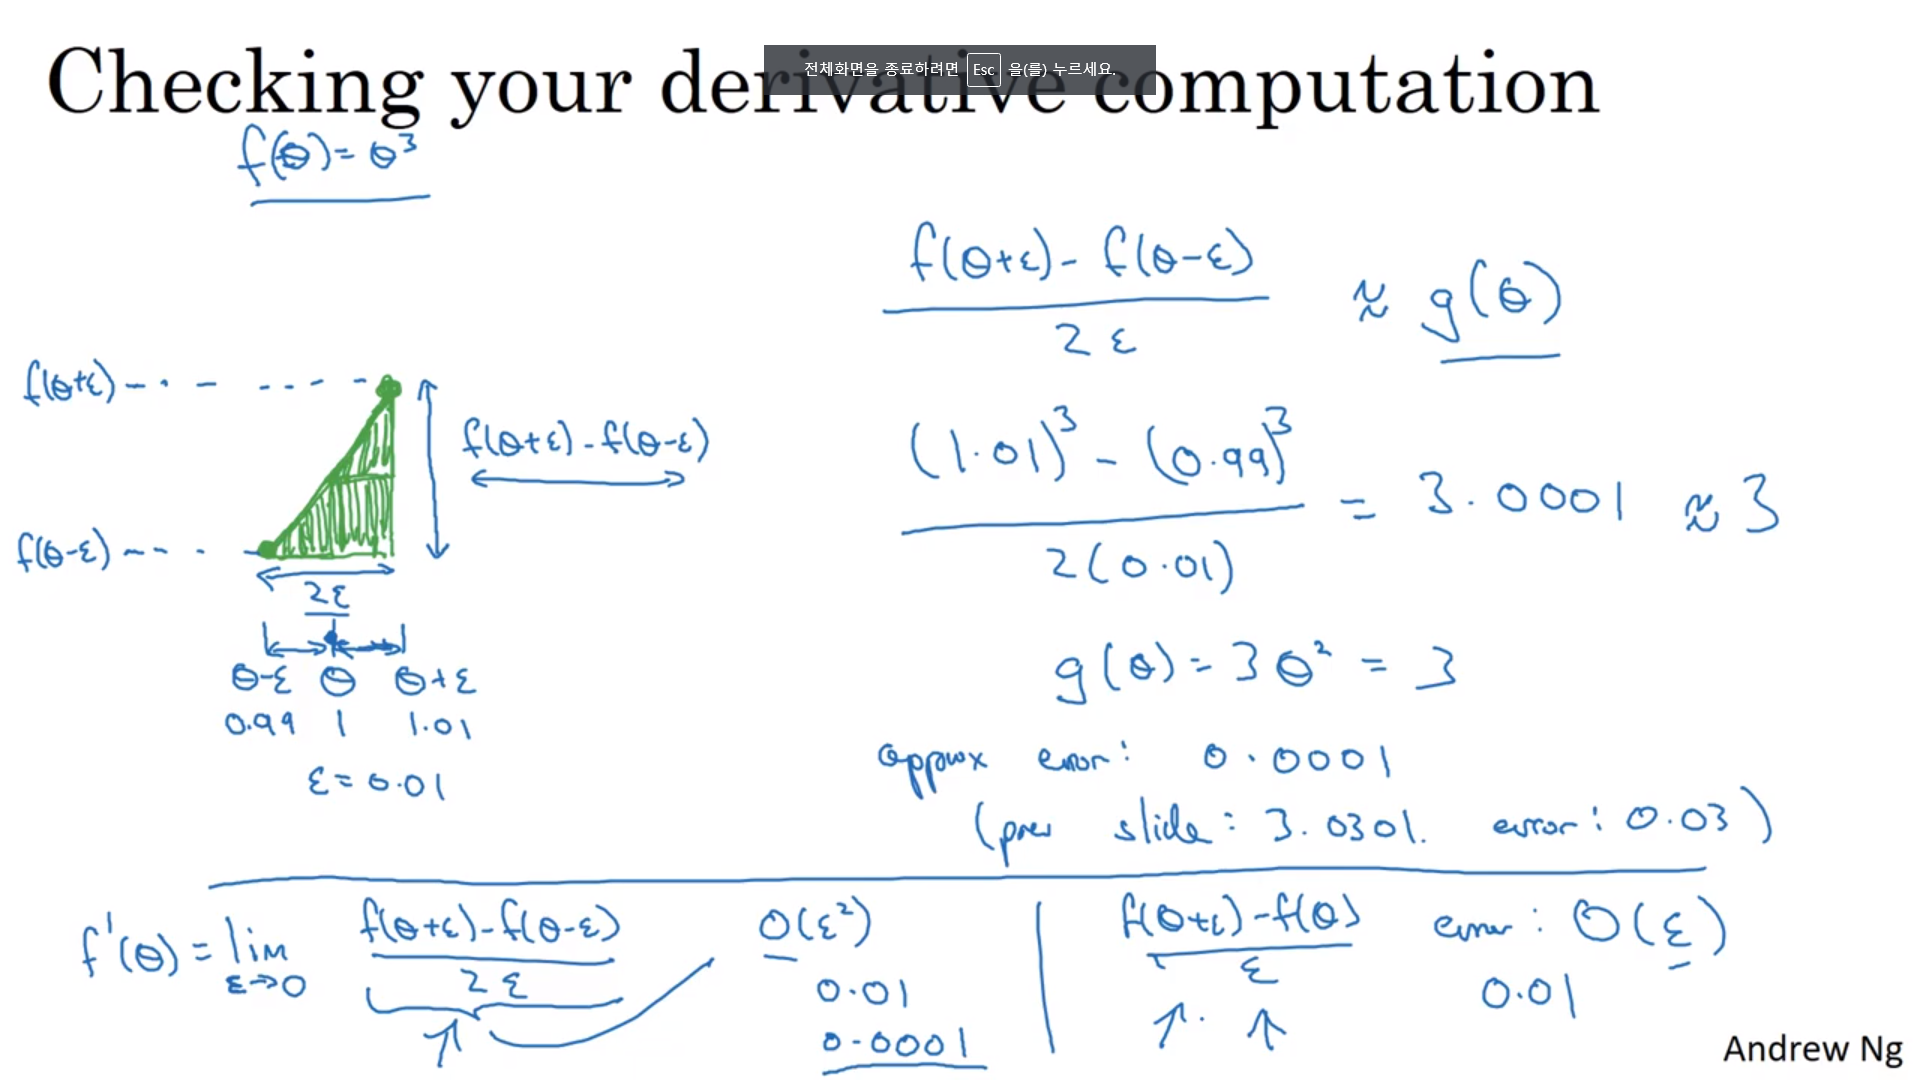 Checking your derivative computation
전체화면을 종료하려면 Esc 을(를) 누르세요.
f(θ) = θ³
f(θ+ε) - f(θ-ε)
2ε
≈ g(θ)
f(θ+ε)
f(θ+ε) - f(θ-ε)
f(θ-ε)
2ε
θ-ε θ θ+ε
0.99 1 1.01
ε = 0.01
(1.01)³ - (0.99)³
2(0.01)
= 3.0001 ≈ 3
g(θ) = 3θ² = 3
approx error: 0.0001
(prev slide: 3.0301. error: 0.03)
f'(θ) = lim
ε→0
f(θ+ε) - f(θ-ε)
2ε
O(ε²)
0.01
0.0001
f(θ+ε) - f(θ)
ε
error: O(ε)
0.01
Andrew Ng